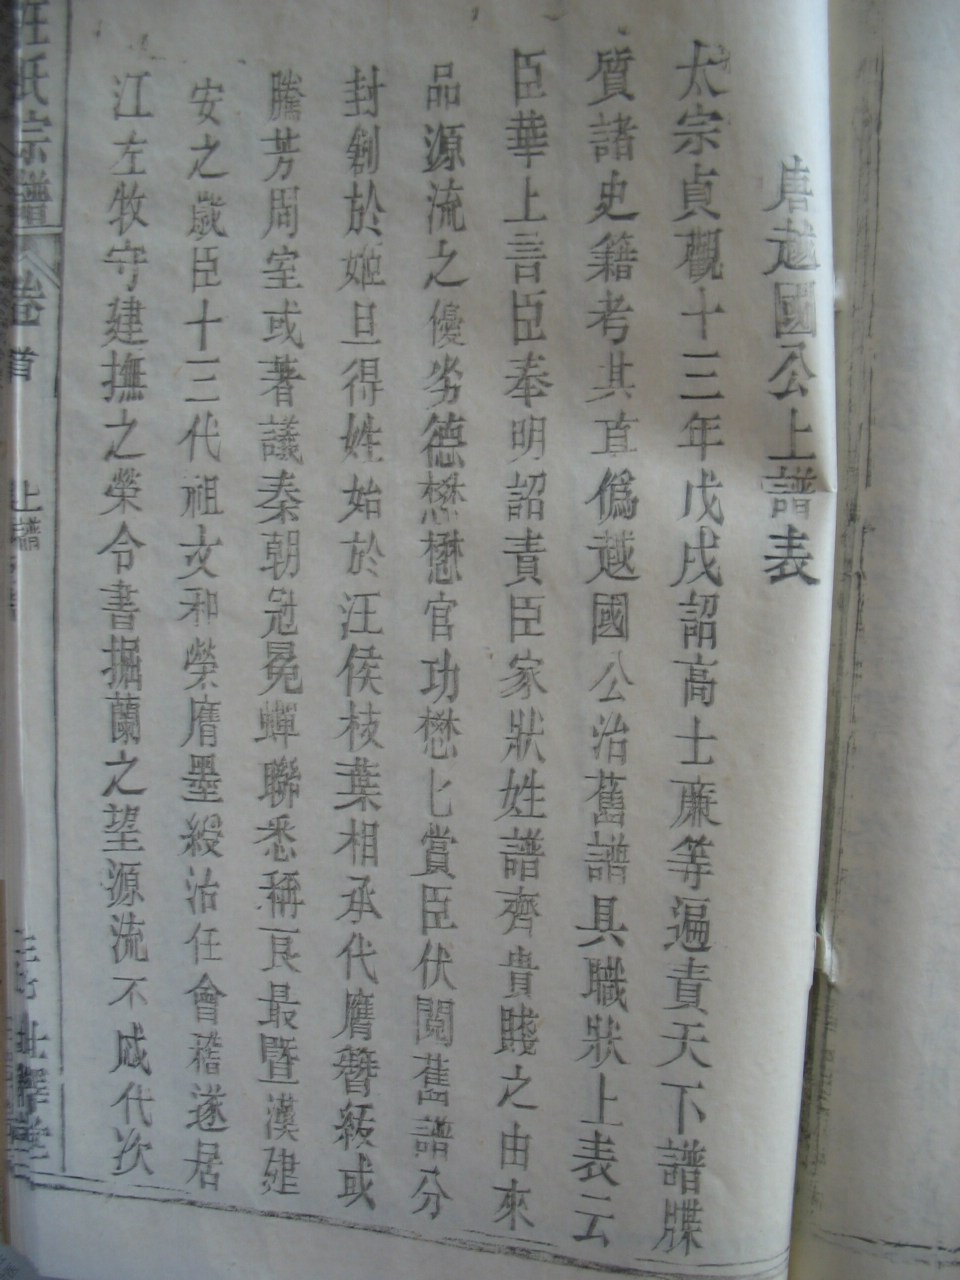 唐越國公上譜表
太宗貞觀十三年戊戌詔高士廉等遍責天下譜牒
質諸史籍考其真僞越國公治舊譜具職狀上表云
臣華上言臣奉明詔責臣家狀姓譜齊貴賤之由來
品源流之優劣德懋懋官功懋匕賞臣伏閱舊譜分
封創於姬旦得姓始於汪侯枝葉相承代膺簪紱或
騰芳周室或著議秦朝冠冕蟬聯悉稱良最暨漢建
安之歲臣十三代祖文和榮膺墨綬沾任會稽遂居
江左牧守建撫之榮令書握蘭之望源流不咸代次
汪氏宗譜 卷首 上譜